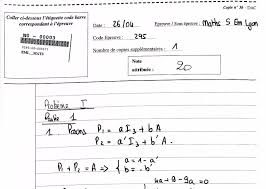 Copie n° 30 - DAC
Coller ci-dessous l'étiquette code barre
correspondant à l'épreuve
Date : 26/04 Epreuve / Sous épreuve : Maths S Em Lyon
NO - 00009
Code Epreuve : 295
Nombre de copies supplémentaires : 1
Note
attribuée : 20
Problème I
Partie 1
1. Posons P₁ = aI₃ + bA
P₂ = a'I₃ + b'A.
P₁ + P₂ = A => { a = 1 - a'
b = - b'